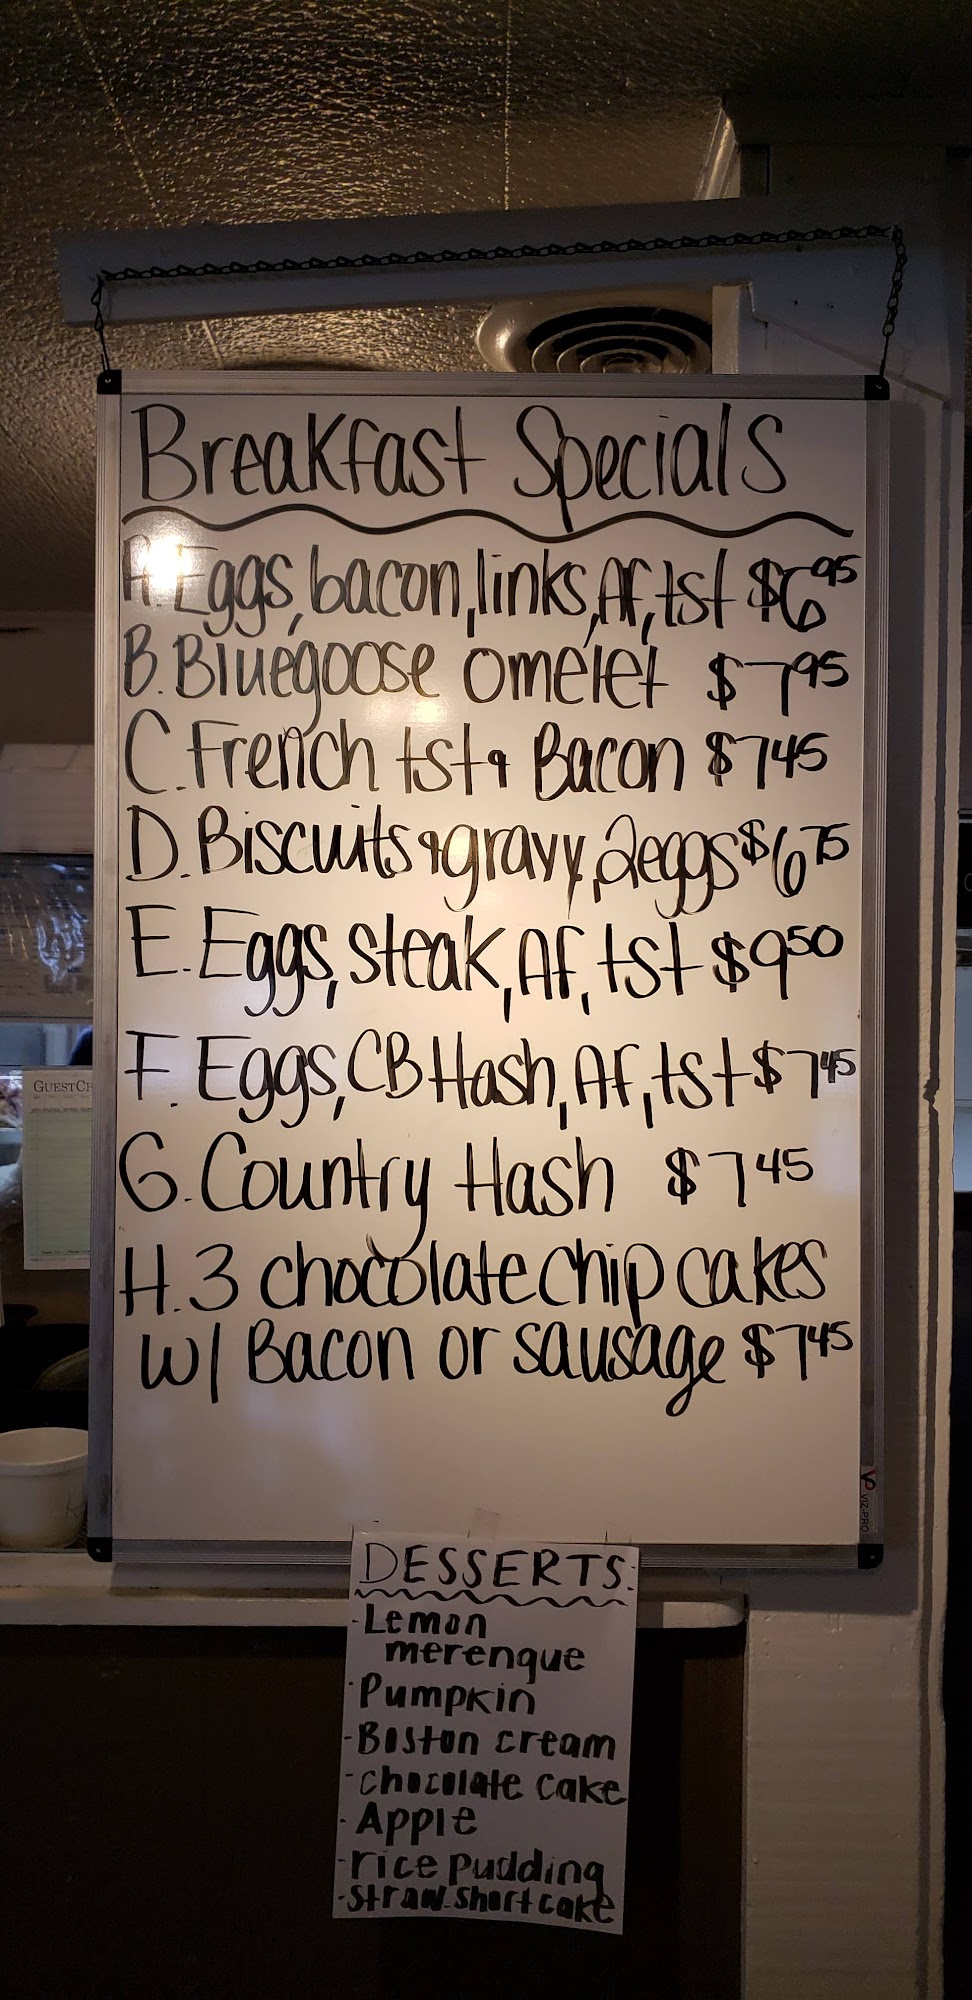 Breakfast Specials
A. Eggs, bacon, links, AF, tst $6.95
B. Bluegoose omelet $7.95
C. French tst & Bacon $7.45
D. Biscuits & gravy, 2eggs $6.75
E. Eggs, steak, AF, tst $9.50
F. Eggs, CB Hash, AF, tst $7.45
GUESTCH
G. Country Hash $7.45
H. 3 chocolate chip cakes
w/ Bacon or sausage $7.45
VIZ-PRO
DESSERTS:
- Lemon
merengue
- Pumpkin
- Boston cream
- chocolate cake
- Apple
- rice pudding
- straw. shortcake